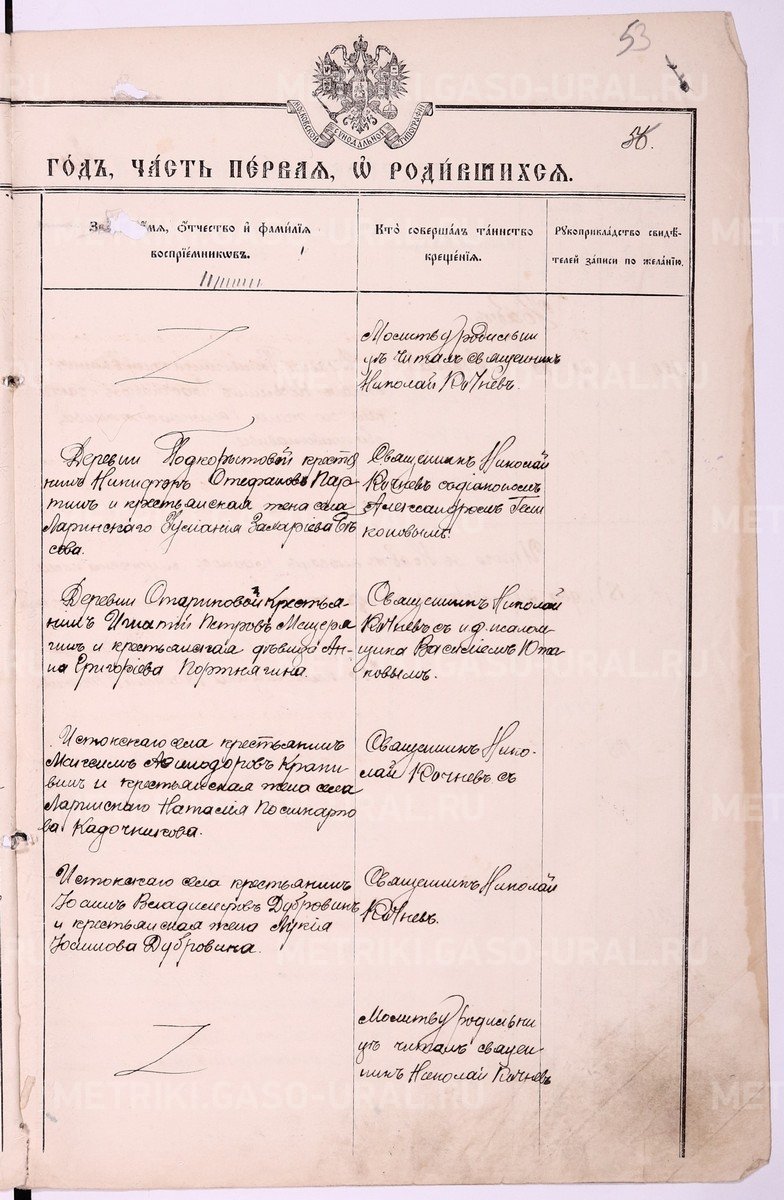 53
56.
МОСКОВСКОЙ СѴНОДАЛЬНОЙ ТИПОГРАФІИ
ГОДЪ, ЧАСТЬ ПЕРВАЯ, Ѡ РОДИВШИХСЯ.
Званіе, имя, отчество и фамилія
воспріемниковъ.
Кто совершалъ таинство
крещенія.
Рукоприкладство свидѣ-
телей записи по желанію.
Молитву родильни
цѣ читалъ священникъ
Николай Кочневъ.
Деревни Подкорытовой крестя
нинъ Никифоръ Стефановъ Пар-
гинъ и крестьянская жена села
Ларинскаго Захаріева
сова.
Священникъ Николай
Кочневъ съ діакономъ
Александромъ
коповымъ.
Деревни Стариковой крестья-
нинъ Игнатій Петровъ Мещеря
гинъ и крестьянская дѣвица Ан-
на Григоріева Портнягина.
Священникъ Николай
Кочневъ съ и.д. псалом-
щика Василіемъ Юта
повымъ.
Истокскаго села крестьянинъ
Максимъ Крапи-
винъ и крестьянская жена села
Ларинскаго Наталія Поликарпо
ва Кадочникова.
Священникъ Нико-
лай Кочневъ съ
Истокскаго села крестьянинъ
Іоаннъ Владиміровъ Дубровинъ
и крестьянская жена Лукія
Іоаннова Дубровина.
Священникъ Николай
Кочневъ.
Молитву родильни
цѣ читалъ священ-
никъ Николай Кочневъ
METRIKI.GASO-URAL.RU